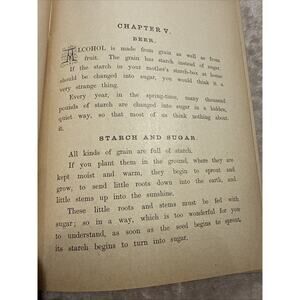 CHAPTER V.
BEER.
ALCOHOL is made from grain as well as from
fruit. The grain has starch instead of sugar.
If the starch in your mother's starch-box at home
should be changed into sugar, you would think it a
very strange thing.
Every year, in the spring-time, many thousand
pounds of starch are changed into sugar in a hidden,
quiet way, so that most of us think nothing about
it.
STARCH AND SUGAR.
All kinds of grain are full of starch.
If you plant them in the ground, where they are
kept moist and warm, they begin to sprout and
grow, to send little roots down into the earth, and
little stems up into the sunshine.
These little roots and stems must be fed with
sugar; so in a way, which is too wonderful for you
to understand, as soon as the seed begins to sprout,
its starch begins to turn into sugar.